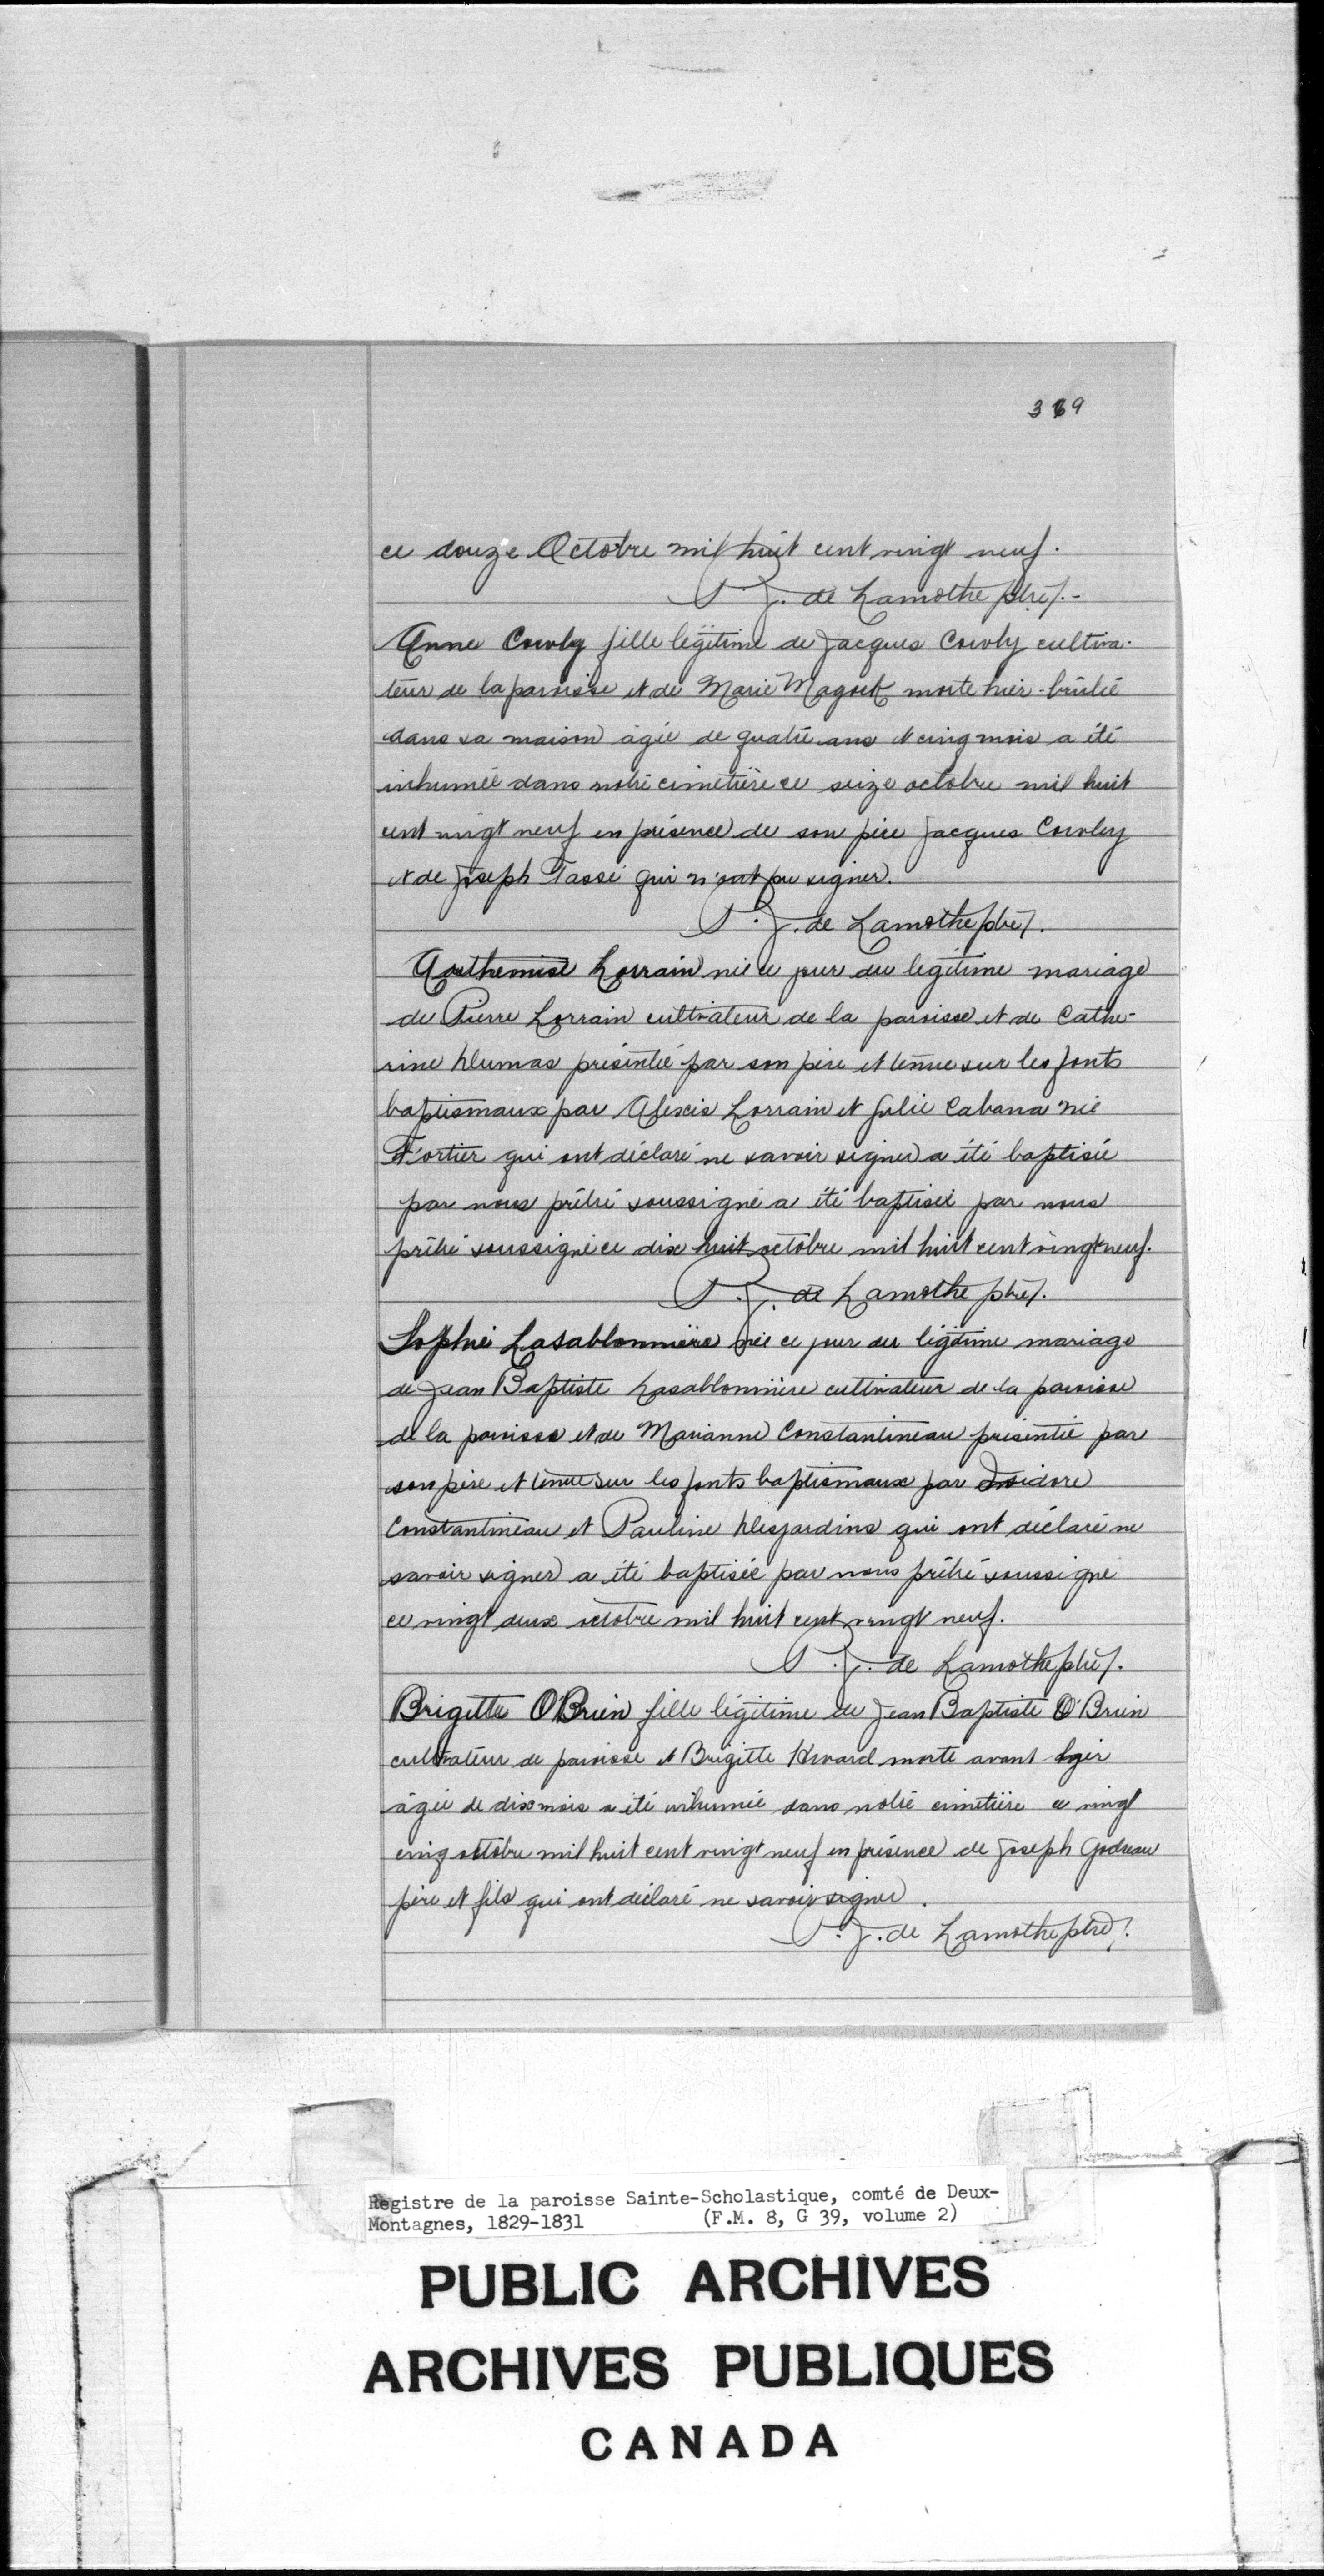 369
ce douze Octobre mil huit cent vingt neuf.
P. J. de Lamothe ptre.-
Anne Cowly fille légitime de Jacques Cowly cultiva-
teur de la paroisse et de Marie Magoek morte hier brûlée
dans sa maison âgée de quatre ans et cinq mois a été
inhumée dans notre cimetière ce seize octobre mil huit
cent vingt neuf en présence de son père Jacques Cowley
et de Joseph Tassé qui n'ont pu signer.
P. J. de Lamothe ptre.
Aouthemise Lorrain née ce jour du legitime mariage
de Pierre Lorrain cultivateur de la paroisse et de Cathe-
rine Dumas présentée par son père et tenue sur les fonts
baptismaux par Alexis Lorrain et Julie Cabana née
Fortier qui ont déclaré ne savoir signer a été baptisée
par nous prêtre soussigné a été baptisée par nous
prêtre soussigné ce dix huit octobre mil huit cent vingt neuf.
P. J. de Lamothe ptre.
Sophie Lasablonnière née ce jour du légitime mariage
de Jean Baptiste Lasablonnière cultivateur de la paroisse
de la paroisse et de Marianne Constantineau présentée par
son père et tenue sur les fonts baptismaux par Isidore
Constantineau et Pauline Desjardins qui ont déclaré ne
savoir signer a été baptisée par nous prêtre soussigné
ce vingt deux octobre mil huit cent vingt neuf.
P. J. de Lamothe ptre.
Brigitte O'Brien fille légitime de Jean Baptiste O'Brien
cultivateur de paroisse et Brigitte morte avant hier
âgée de dix mois a été inhumée dans notre cimetière ce vingt
cinq octobre mil huit cent vingt neuf en présence de Joseph Godreau
père et fils qui ont déclaré ne savoir signer.
P. J. de Lamothe ptre.
Registre de la paroisse Sainte-Scholastique, comté de Deux-
Montagnes, 1829-1831 (F.M. 8, G 39, volume 2)
PUBLIC ARCHIVES
ARCHIVES PUBLIQUES
CANADA